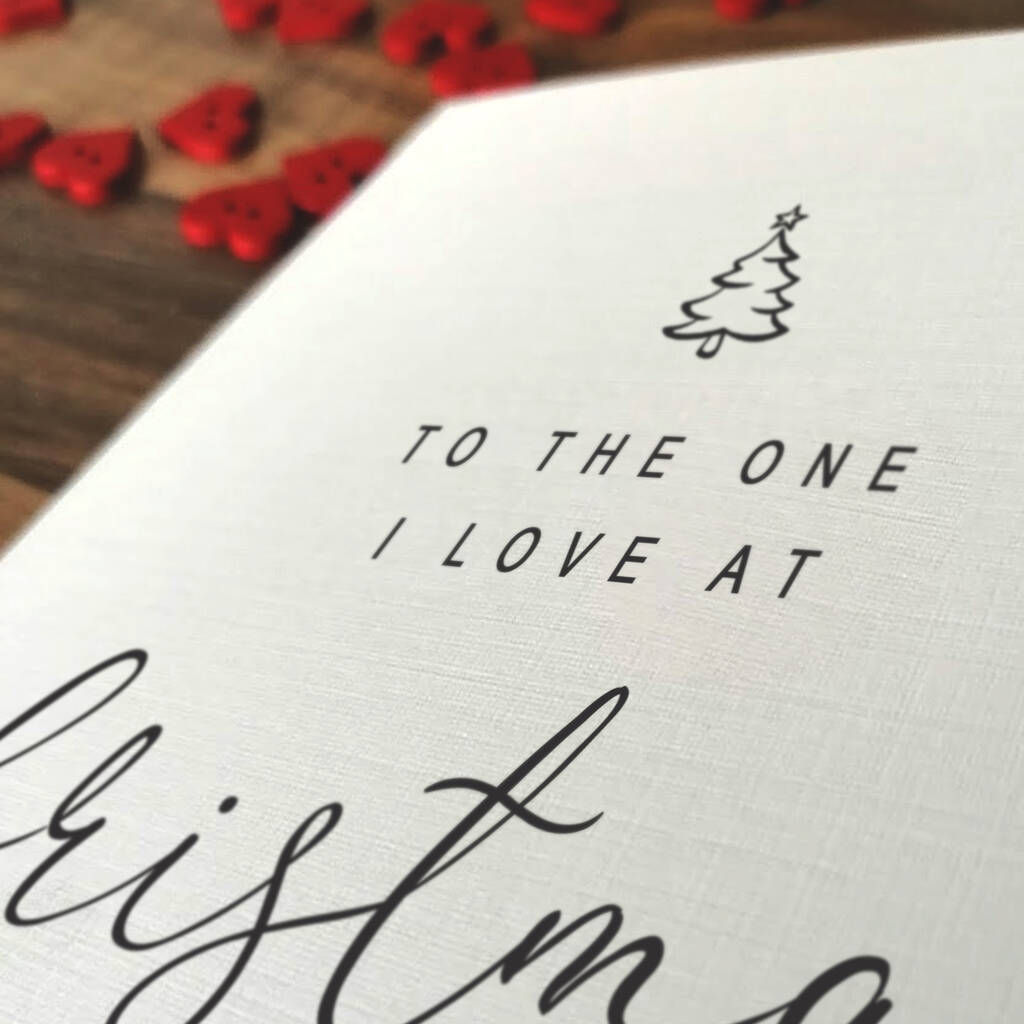 TO THE ONE
I LOVE AT
hristma